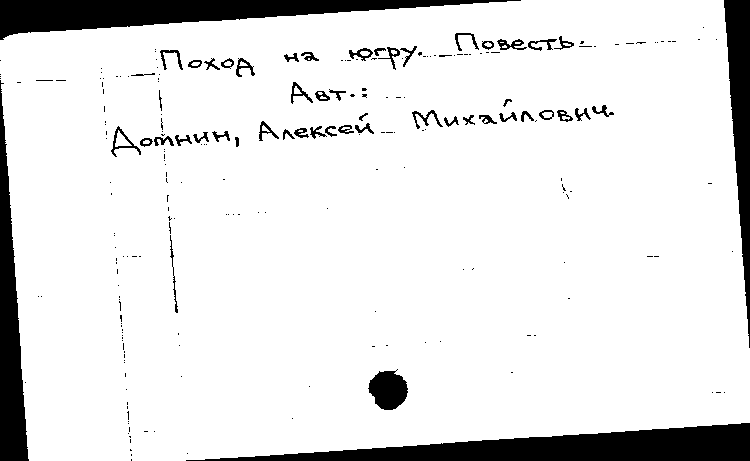 Поход на югру. Повесть.
Авт.:
Домнин, Алексей Михайлович.